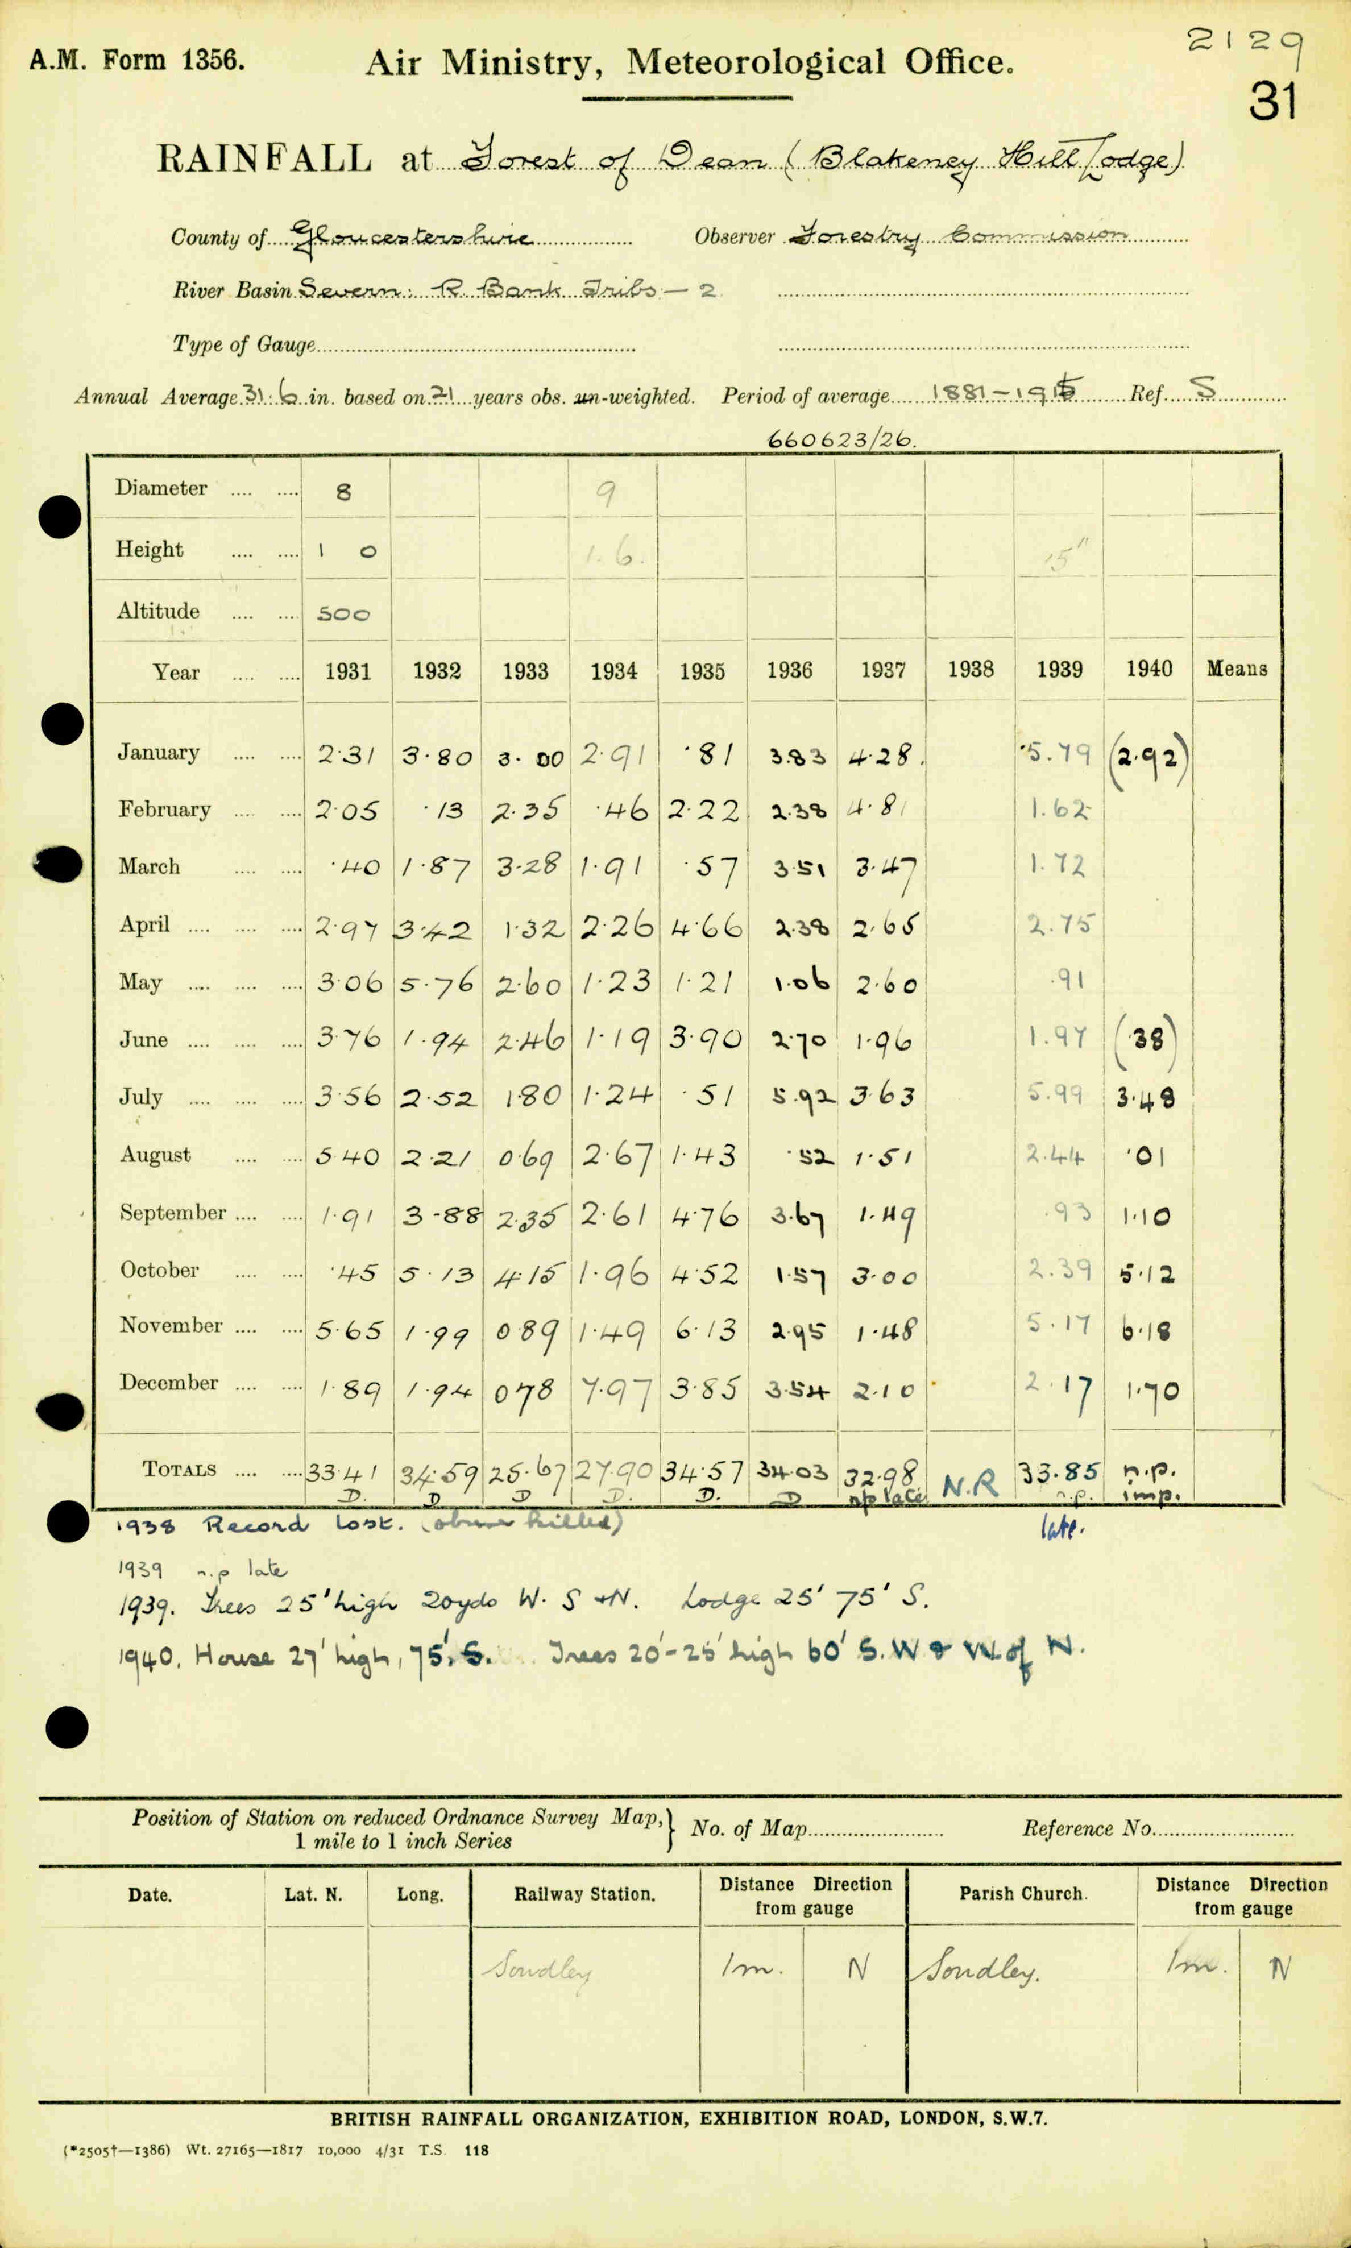 2129
A.M. Form 1356. Air Ministry, Meteorological Office.
31
RAINFALL at Forest of Dean (Blakeney Hill Lodge)
County of Gloucestershire Observer Forestry Commission
River Basin Severn: R. Bank Tribs — 2
Type of Gauge
Annual Average 31.6 in. based on 21 years obs. un-weighted. Period of average 1881-1915 Ref. S
660623/26.
Diameter 8 9
Height 1 0 1.6. 15"
Altitude 500
Year 1931 1932 1933 1934 1935 1936 1937 1938 1939 1940 Means
January 2.31 3.80 3.00 2.91 .81 3.83 4.28 5.79 (2.92)
February 2.05 .13 2.35 .46 2.22 2.38 4.81 1.62
March .40 1.87 3.28 1.91 .57 3.51 3.47 1.72
April 2.97 3.42 1.32 2.26 4.66 2.38 2.65 2.75
May 3.06 5.76 2.60 1.23 1.21 1.06 2.60 .91
June 3.76 1.94 2.46 1.19 3.90 2.70 1.96 1.97 (.38)
July 3.56 2.52 1.80 1.24 .51 5.92 3.63 5.99 3.48
August 5.40 2.21 0.69 2.67 1.43 .52 1.51 2.44 .01
September 1.91 3.88 2.35 2.61 4.76 3.67 1.49 .93 1.10
October .45 5.13 4.15 1.96 4.52 1.57 3.00 2.39 5.12
November 5.65 1.99 0.89 1.49 6.13 2.95 1.48 5.17 6.18
December 1.89 1.94 0.78 7.97 3.85 3.54 2.10 2.17 1.70
TOTALS 33.41 34.59 25.67 27.90 34.57 34.03 32.98 N.R 33.85 n.p.
D. D D D. D. D np late n.p. imp.
1938 Record lost. (obsr killed) late.
1939 n.p late
1939. Trees 25' high 20yds W. S + N. Lodge 25' 75' S.
1940. House 27' high, 75' S. Trees 20'-25' high 60' S.W & W of N.
Position of Station on reduced Ordnance Survey Map, 1 mile to 1 inch Series } No. of Map Reference No.
Date. Lat. N. Long. Railway Station. Distance Direction from gauge Parish Church. Distance Direction from gauge
Soudley 1m. N Soudley. 1m. N
BRITISH RAINFALL ORGANIZATION, EXHIBITION ROAD, LONDON, S.W.7.
(*2505†—1386) Wt. 27165—1817 10,000 4/31 T.S. 118